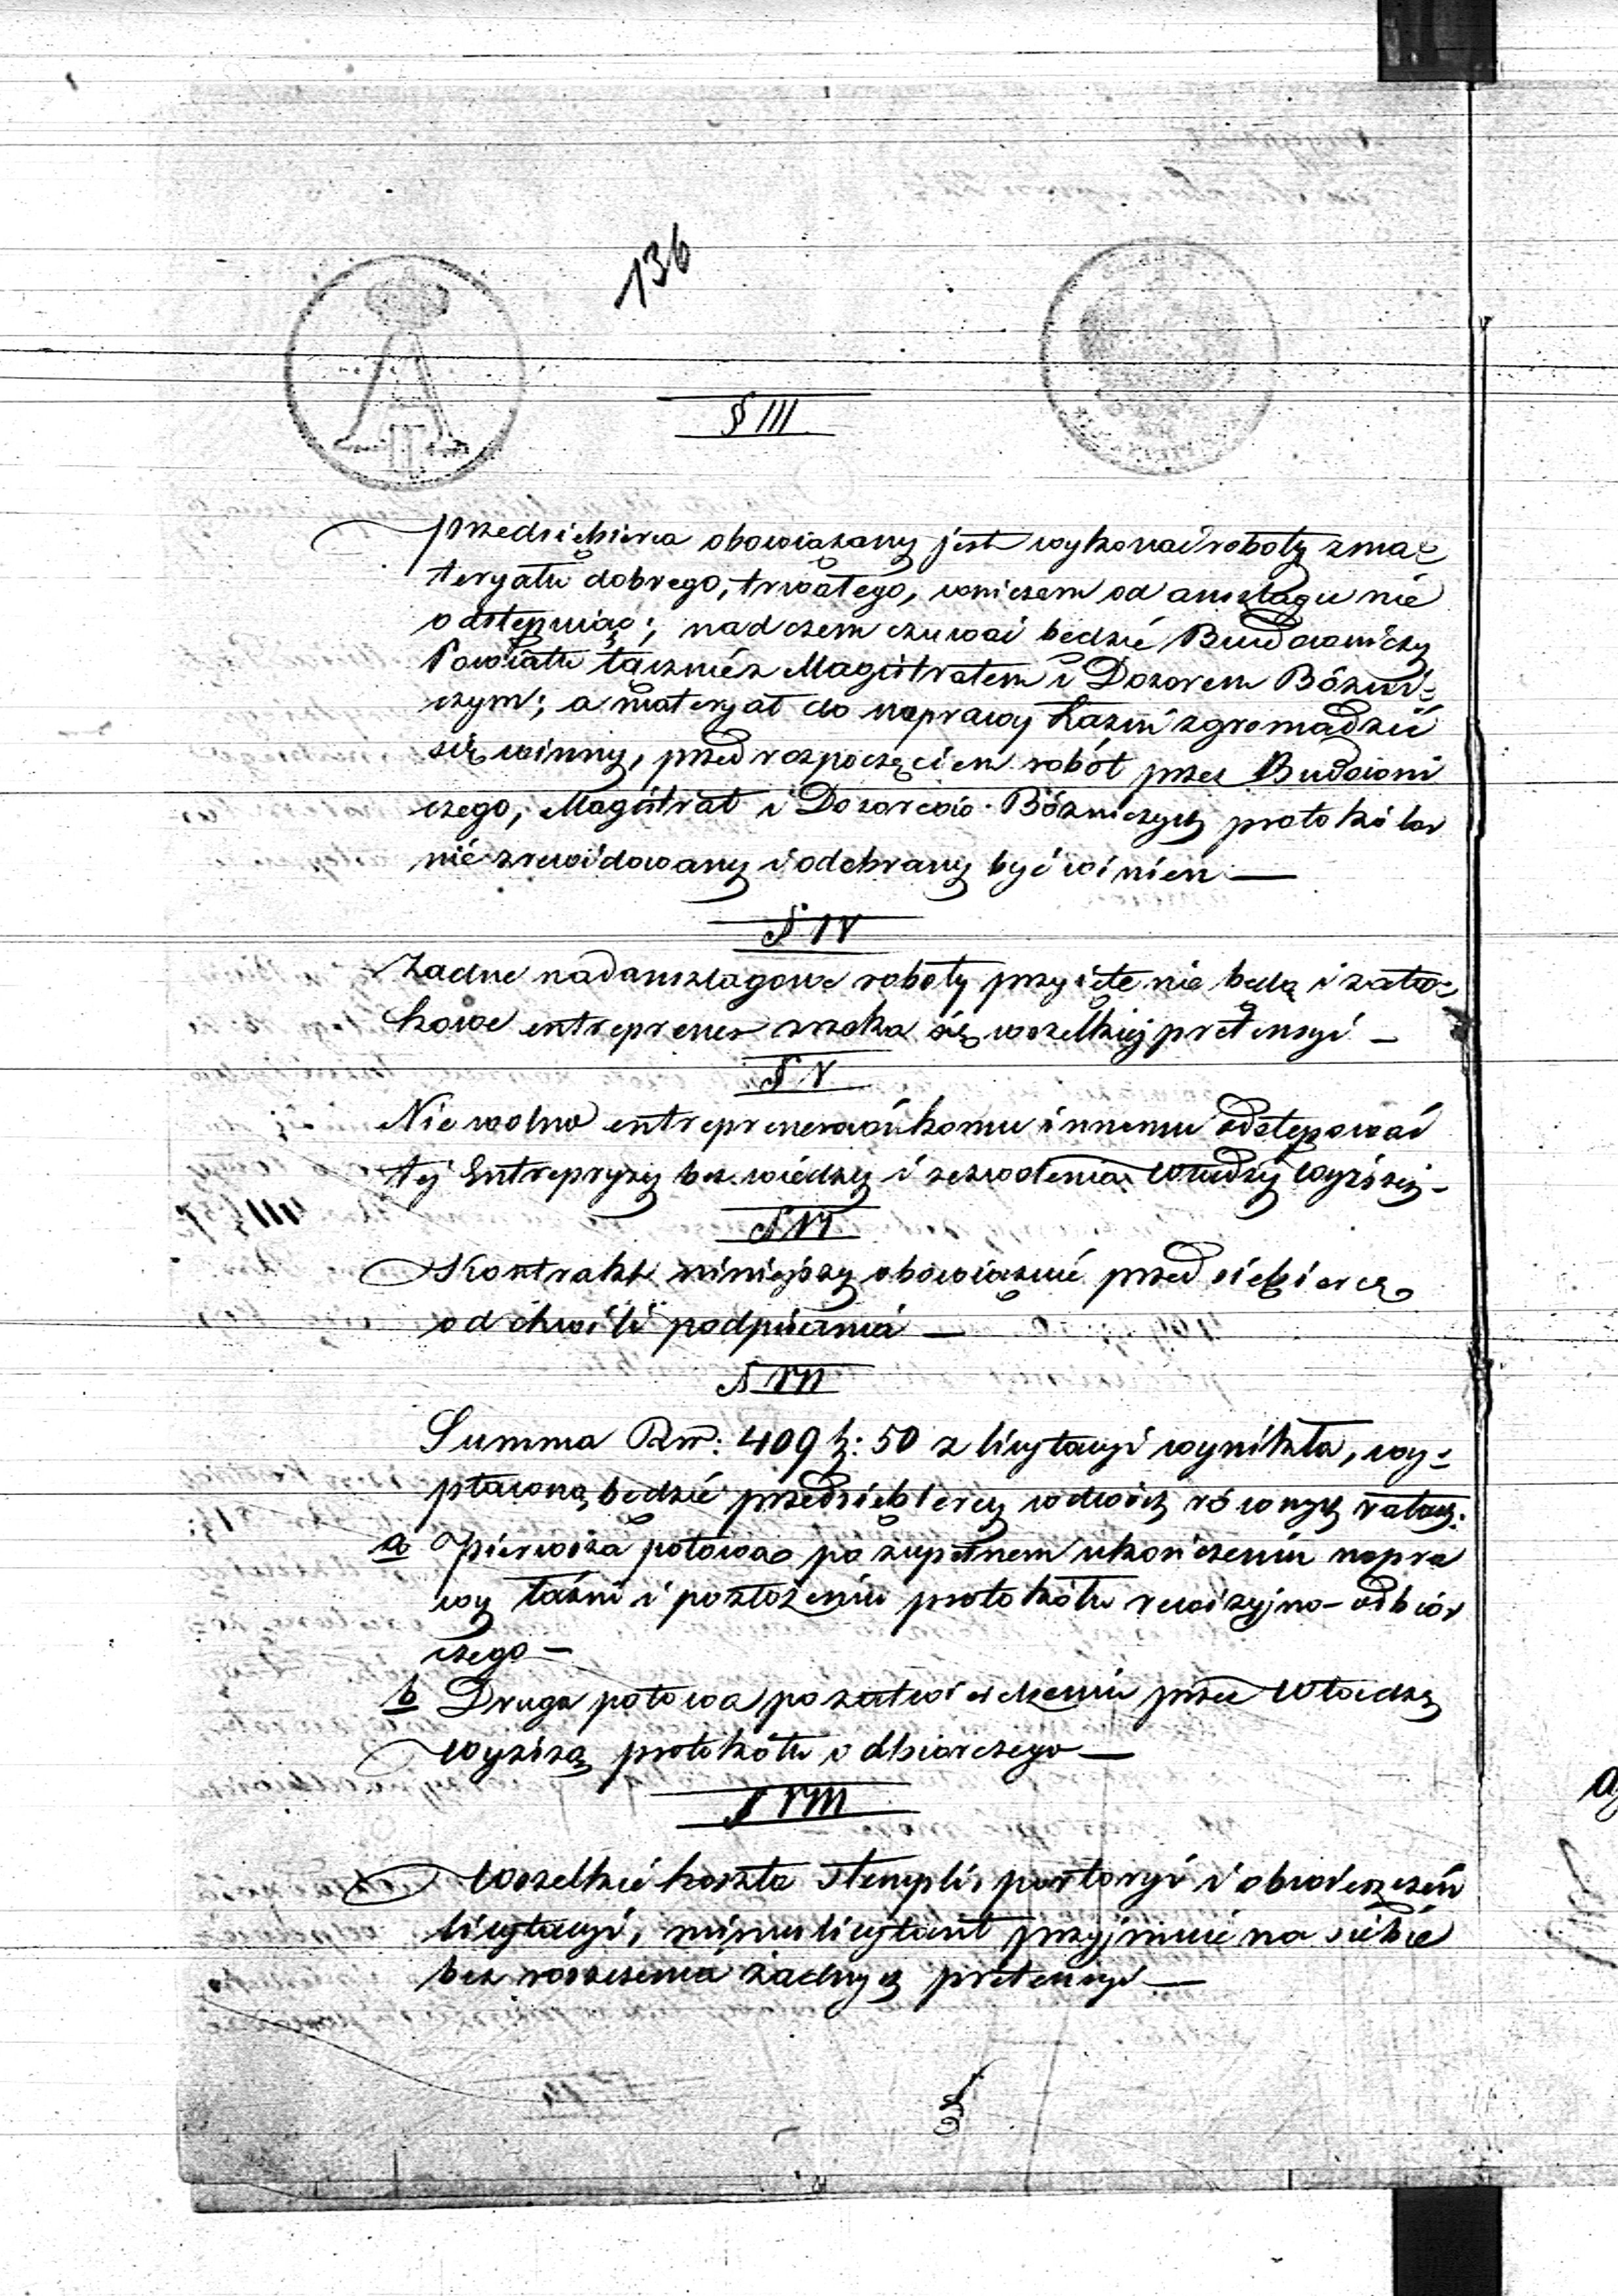 136
§ III
Przedsiebierca obowiązany jest wykonać roboty z ma=
teryału dobrego, trwałego, wniczem od anszlagu nie
odstępuiąc; nad czem czuwać będzie Budowniczy
Powiatu łącznie z Magistratem i Dozorem Bóźni=
czym; a materyał do naprawy Łaźni zgromadzić
się winny, przed rozpoczęciem robót przez Budowni
czego, Magistrat i Dozorców Bóźniczych protokólar
nie zrewidowany i odebrany być winien —
§ IV
Żadne nadanszlagowe roboty przyięte nie będą i za ta=
kowe entreprener zrzeka się wszelkiej pretensyi —
§ V
Nie wolno entreprenerowi komu innemu odstępować
tej Entrepryzy bez wiedzy i zezwolenia Władzy Wyższej —
§ VI
Kontrakt niniejszy obowiązuie przedsiębiercę
od chwili podpisania —
§ VII
Summa Rsr: 409 k: 50 z licytacyi wynikła, wy=
płaconą będzie przedsiębiercy w dwóch równych ratach:
a Pierwsza połowa po zupełnem ukończeniu napra
wy łaźni i po złożeniu protokółu rewizyjno-odbior
czego —
b Druga połowa po zatwierdzeniu przez Władzę
Wyższą protokółu odbiorczego —
§ VIII
Wszelkie koszta Stempli, portoryi i obwieszczeń
licytacyi, minus licytant przyjmuie na siebie
bez roszczenia żadnych pretensyi —